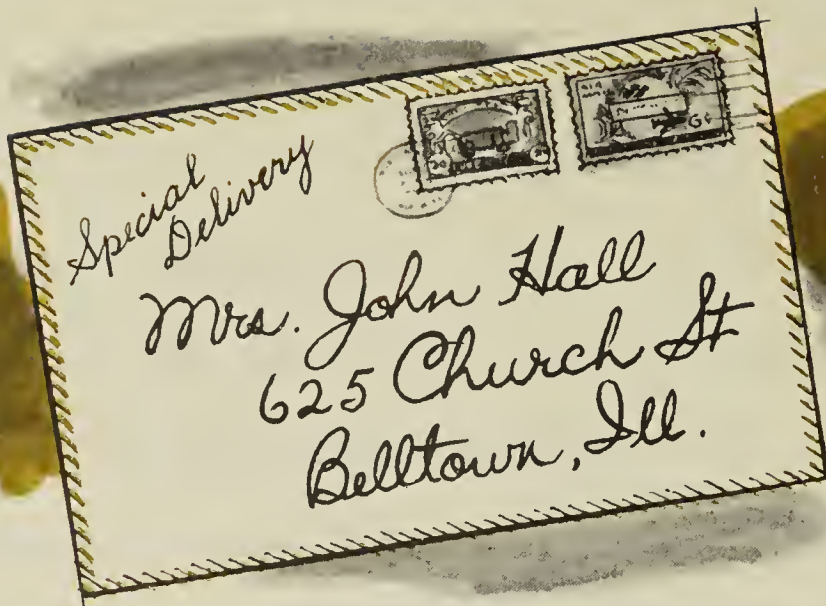 Special
Delivery
Mrs. John Hall
625 Church St
Belltown, Ill.
6¢